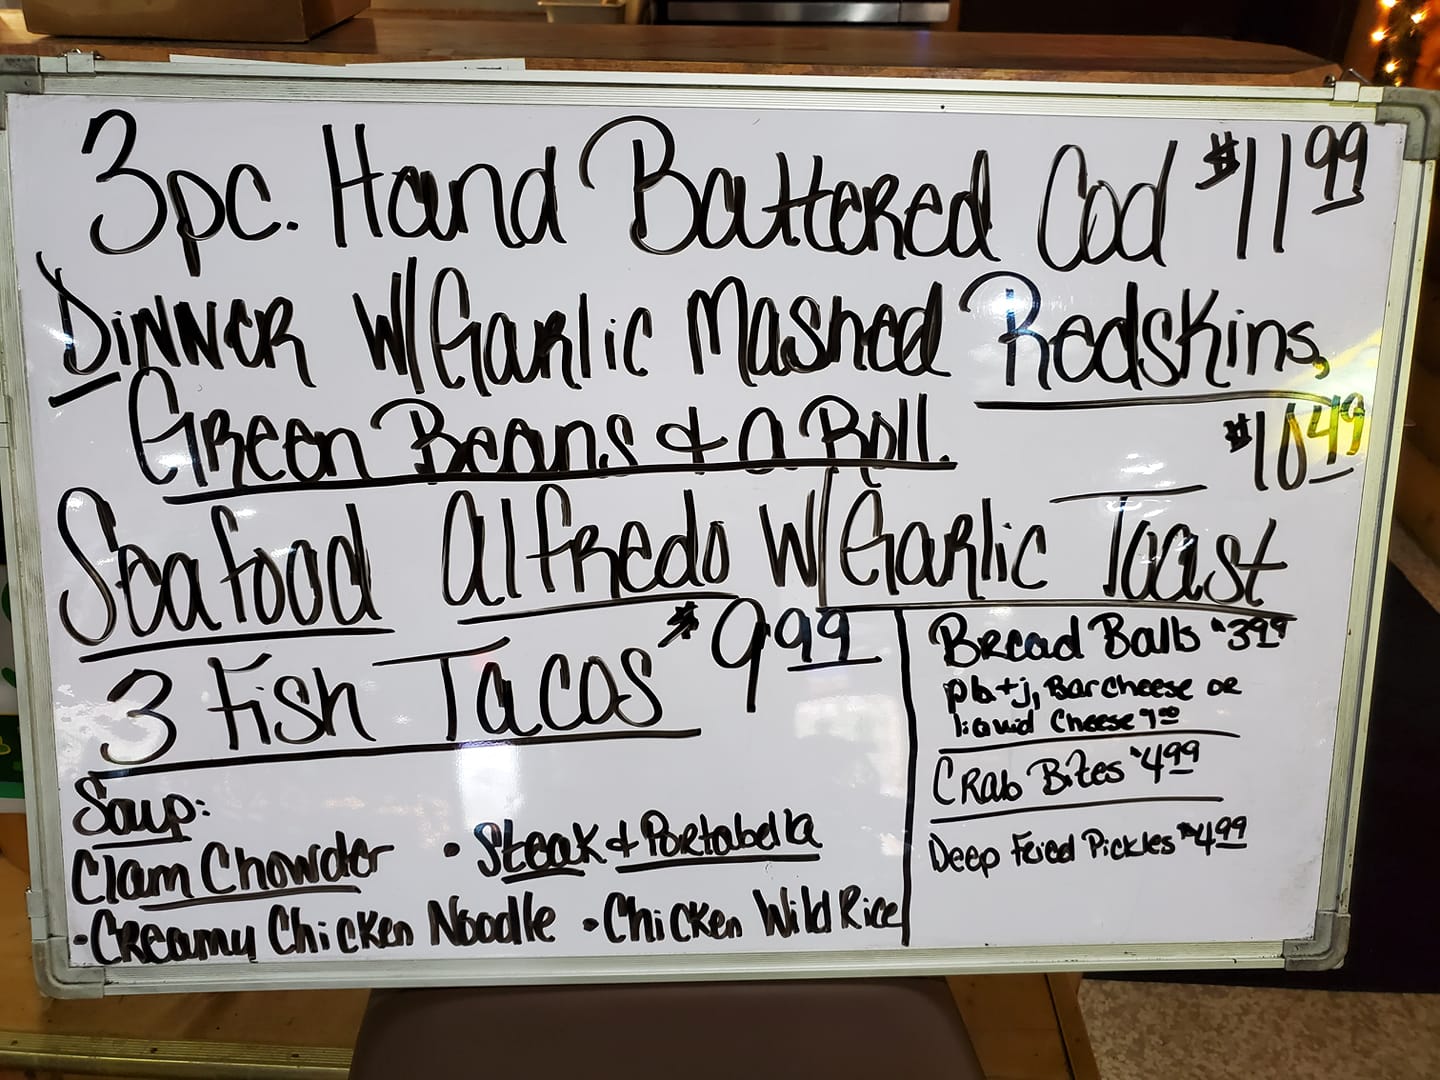 3pc. Hand Battered Cod $11.99
Dinner w/ Garlic Mashed Redskins,
Green Beans & a Roll.
$10.49
Seafood Alfredo w/ Garlic Toast
3 Fish Tacos $9.99
Soup:
Clam Chowder • Steak & Portabella
• Creamy Chicken Noodle • Chicken Wild Rice
Bread Balls $3.99
pb+j, Bar Cheese or
liquid Cheese
Crab Bites $4.99
Deep Fried Pickles $4.99